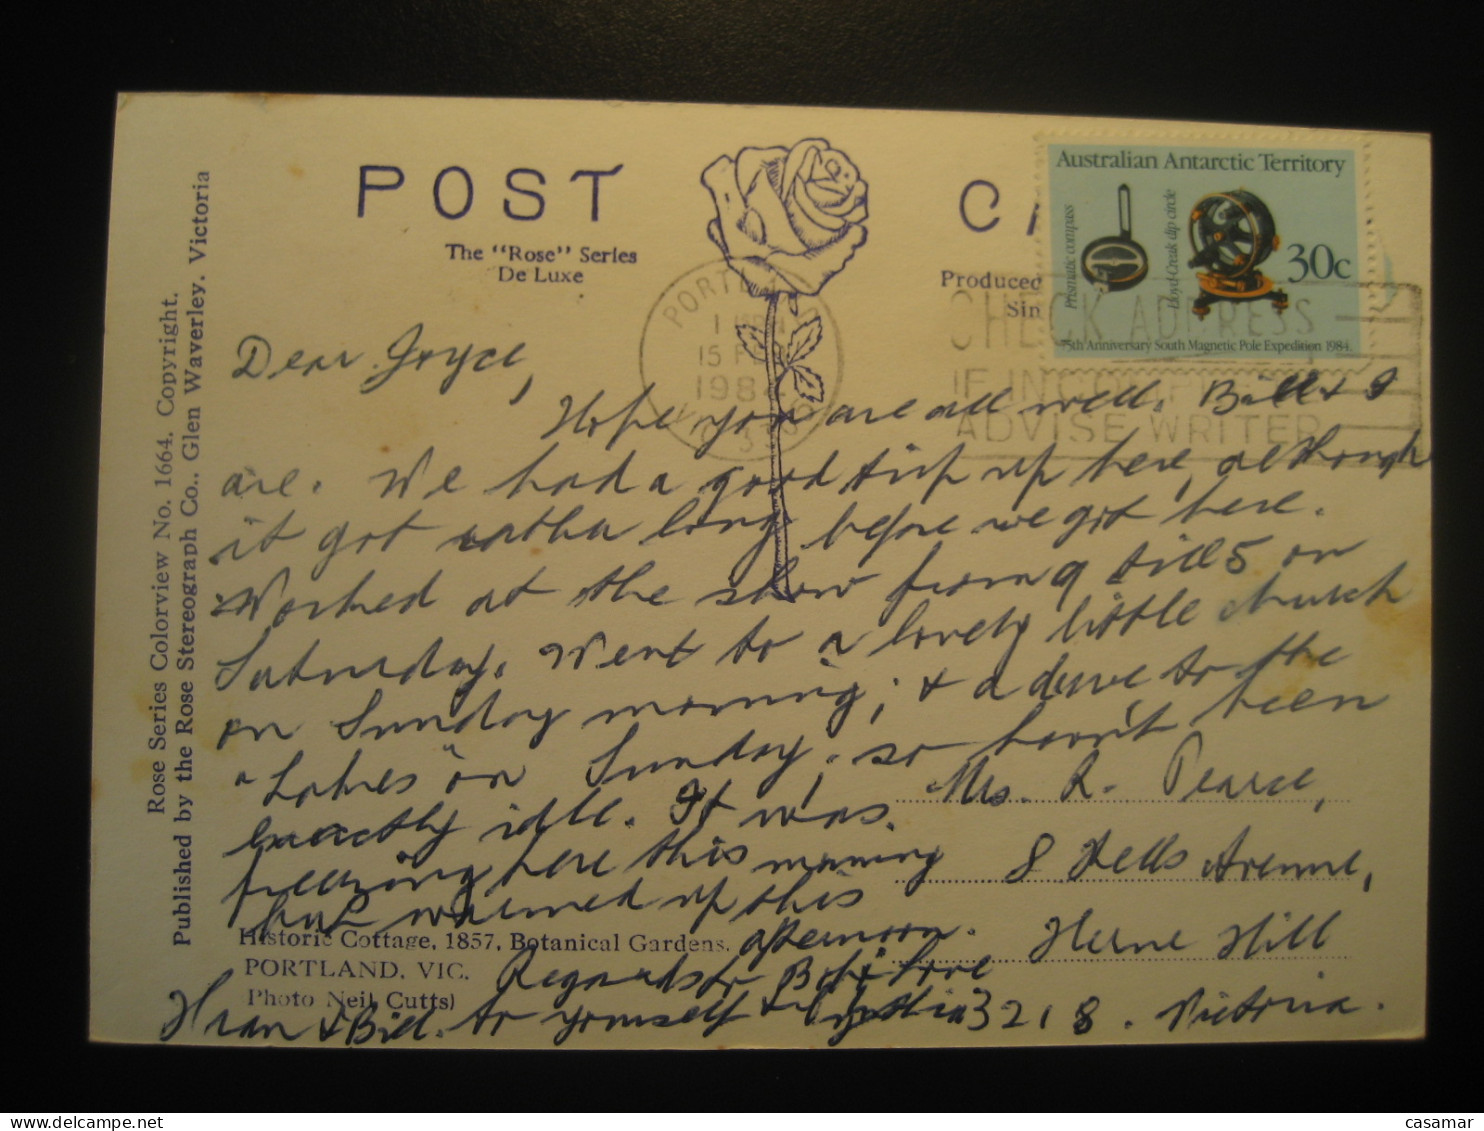 POST CA
The "Rose" Series
De Luxe
Produced
Sin
Australian Antarctic Territory
Prismatic compass
Lloyd-Creak dip circle
30c
75th Anniversary South Magnetic Pole Expedition 1984.
PORTLAND
1
15 FEB
198
VIC
CHECK ADDRESS
IF INCOMPLETE
ADVISE WRITER
Rose Series Colorview No. 1664. Copyright.
Published by the Rose Stereograph Co., Glen Waverley, Victoria
Dear Joyce,
Hope you are all well. Bill & I
are. We had a good trip up here, although
it got rather long before we got here.
Worked at the show from 9 till 5 on
Saturday. Went to a lovely little church
on Sunday morning; & a drive to the
"Lakes" on Sunday, so havn't been
exactly idle. It was
freezing here this morning
but warmed up this
afternoon.
Regards to Bob & love
to yourself & Cynthia
& Bill.
Mrs. R. Pearce,
8 Hells Avenue,
Herne Hill
3218. Victoria.
Historic Cottage, 1857, Botanical Gardens,
PORTLAND, VIC.
Photo Neil Cutts)
delcampe.net
casamar